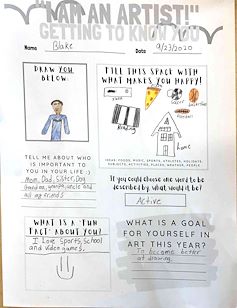 "I AM AN ARTIST!"
GETTING TO KNOW YOU
Name Blake Date 9/23/2020
DRAW YOU
BELOW:
FILL THIS SPACE WITH
WHAT MAKES YOU HAPPY!
Pizza
Soccer
Reading
home
TELL ME ABOUT WHO
IS IMPORTANT TO
YOU IN YOUR LIFE :)
Mom, Dad, Sister, Dog
Grandma, grandpa, uncle and
all my friends
IDEAS: FOODS, MUSIC, SPORTS, ATHLETES, HOLIDAYS,
SUBJECTS, ACTIVITIES, PLACES, WEATHER, PEOPLE
If you could choose one word to be
described by, what would it be?
Active
WHAT IS A "FUN
FACT" ABOUT YOU?
I Love Sports, School
and video games.
WHAT IS A GOAL
FOR YOURSELF IN
ART THIS YEAR?
To become better
at drawing.